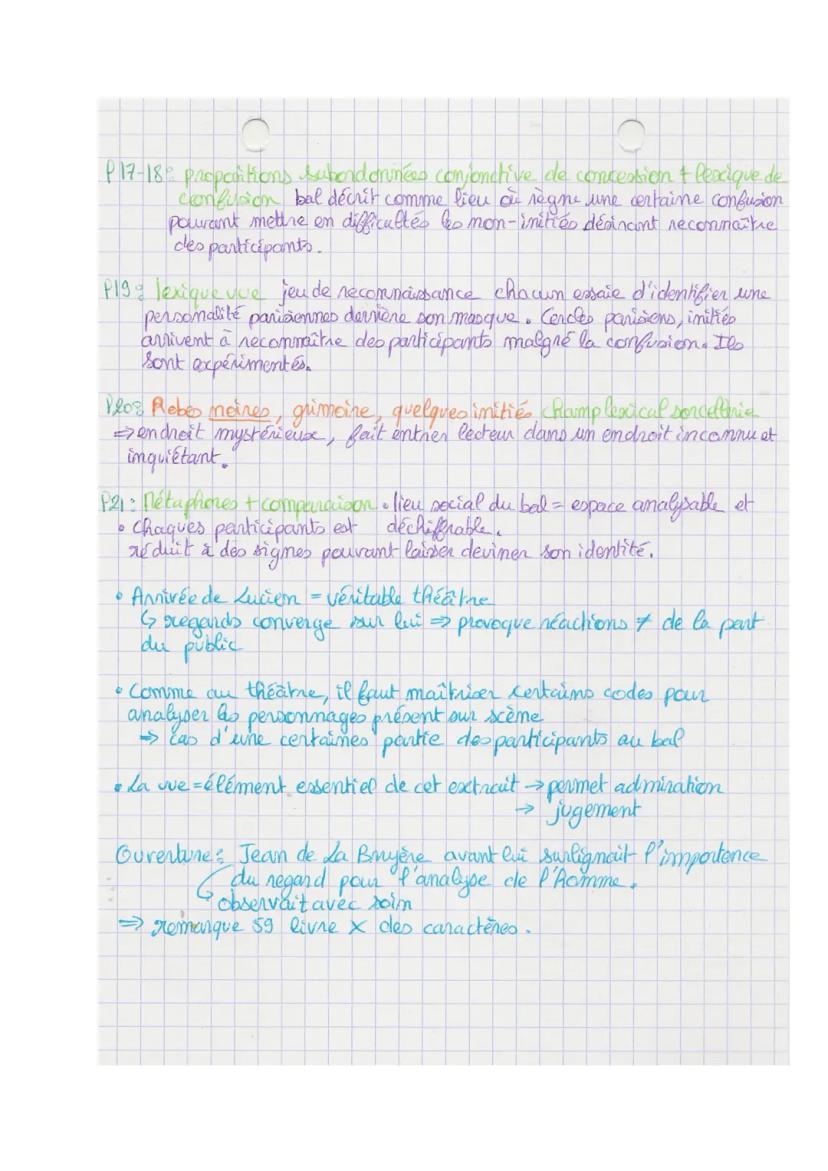 P17-18: propositions subordonnées conjonctive de concession + lexique de
confusion bal décrit comme lieu où règne une certaine confusion
pouvant mettre en difficultés les non-initiés désirant reconnaître
des participants.
P19: lexique vue jeu de reconnaissance chacun essaie d'identifier une
personalité parisiennes derrière son masque. Cercles parisiens, initiés
arrivent à reconnaître des participants malgré la confusion. Ils
sont expérimentés.
P20: Robes noires, grimoire, quelques initiés champ lexical sorcellerie
⇒ endroit mystérieux, fait entrer lecteur dans un endroit inconnu et
inquiétant.
P21: Métaphores + comparaison • lieu social du bal = espace analysable et
• chaques participants est déchiffrable.
réduit à des signes pouvant laisser deviner son identité.
• Arrivée de Lucien = véritable théâtre
↳ regards converge sur lui ⇒ provoque réactions ≠ de la part
du public
• Comme au théâtre, il faut maîtriser certains codes pour
analyser les personnages présent sur scène
⇒ cas d'une certaines partie des participants au bal
• La vue = élément essentiel de cet extrait → permet admiration
→ jugement
Ouverture: Jean de La Bruyère avant lui surlignait l'importance
du regard pour l'analyse de l'Homme.
↳ observait avec soin
⇒ remarque 59 livre X des caractères.